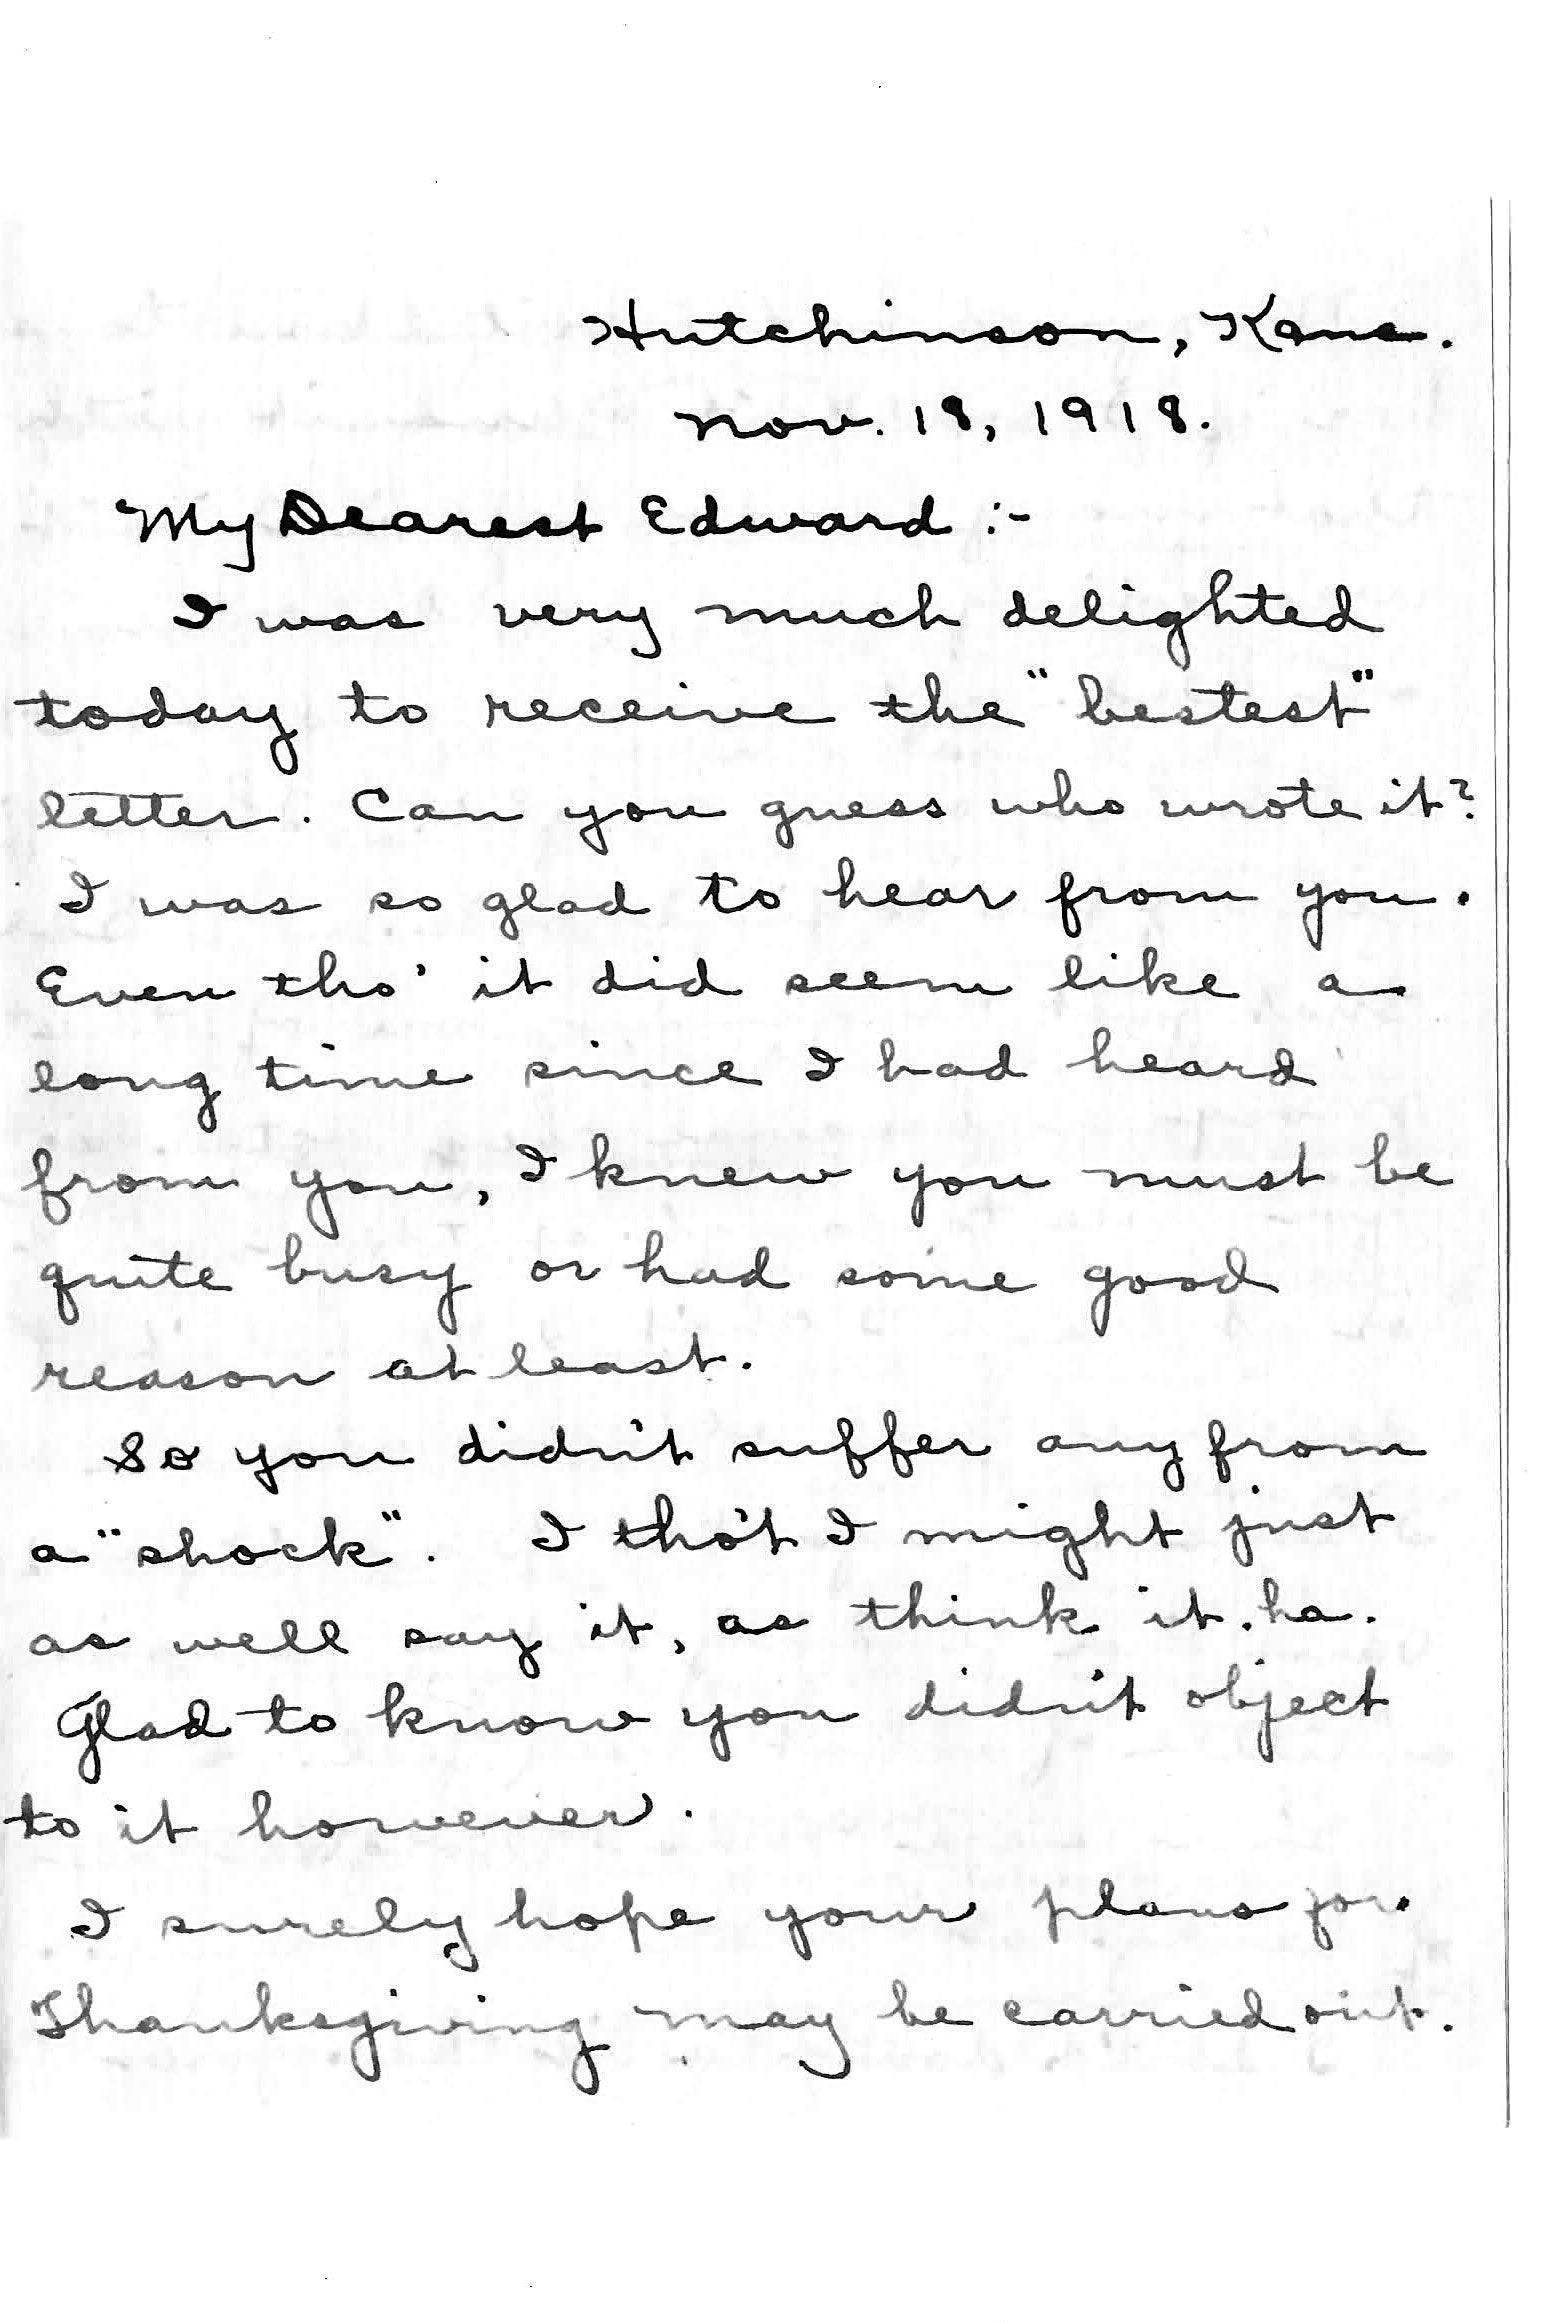 Hutchinson, Kans.
Nov. 18, 1918.
My Dearest Edward :-
I was very much delighted
today to receive the "bestest"
letter. Can you guess who wrote it?
I was so glad to hear from you.
Even tho' it did seem like a
long time since I had heard
from you, I knew you must be
quite busy or had some good
reason at least.
So you didn't suffer any from
a "shock". I tho't I might just
as well say it, as think it. ha.
Glad to know you didn't object
to it however.
I surely hope your plans for
Thanksgiving may be carried out.